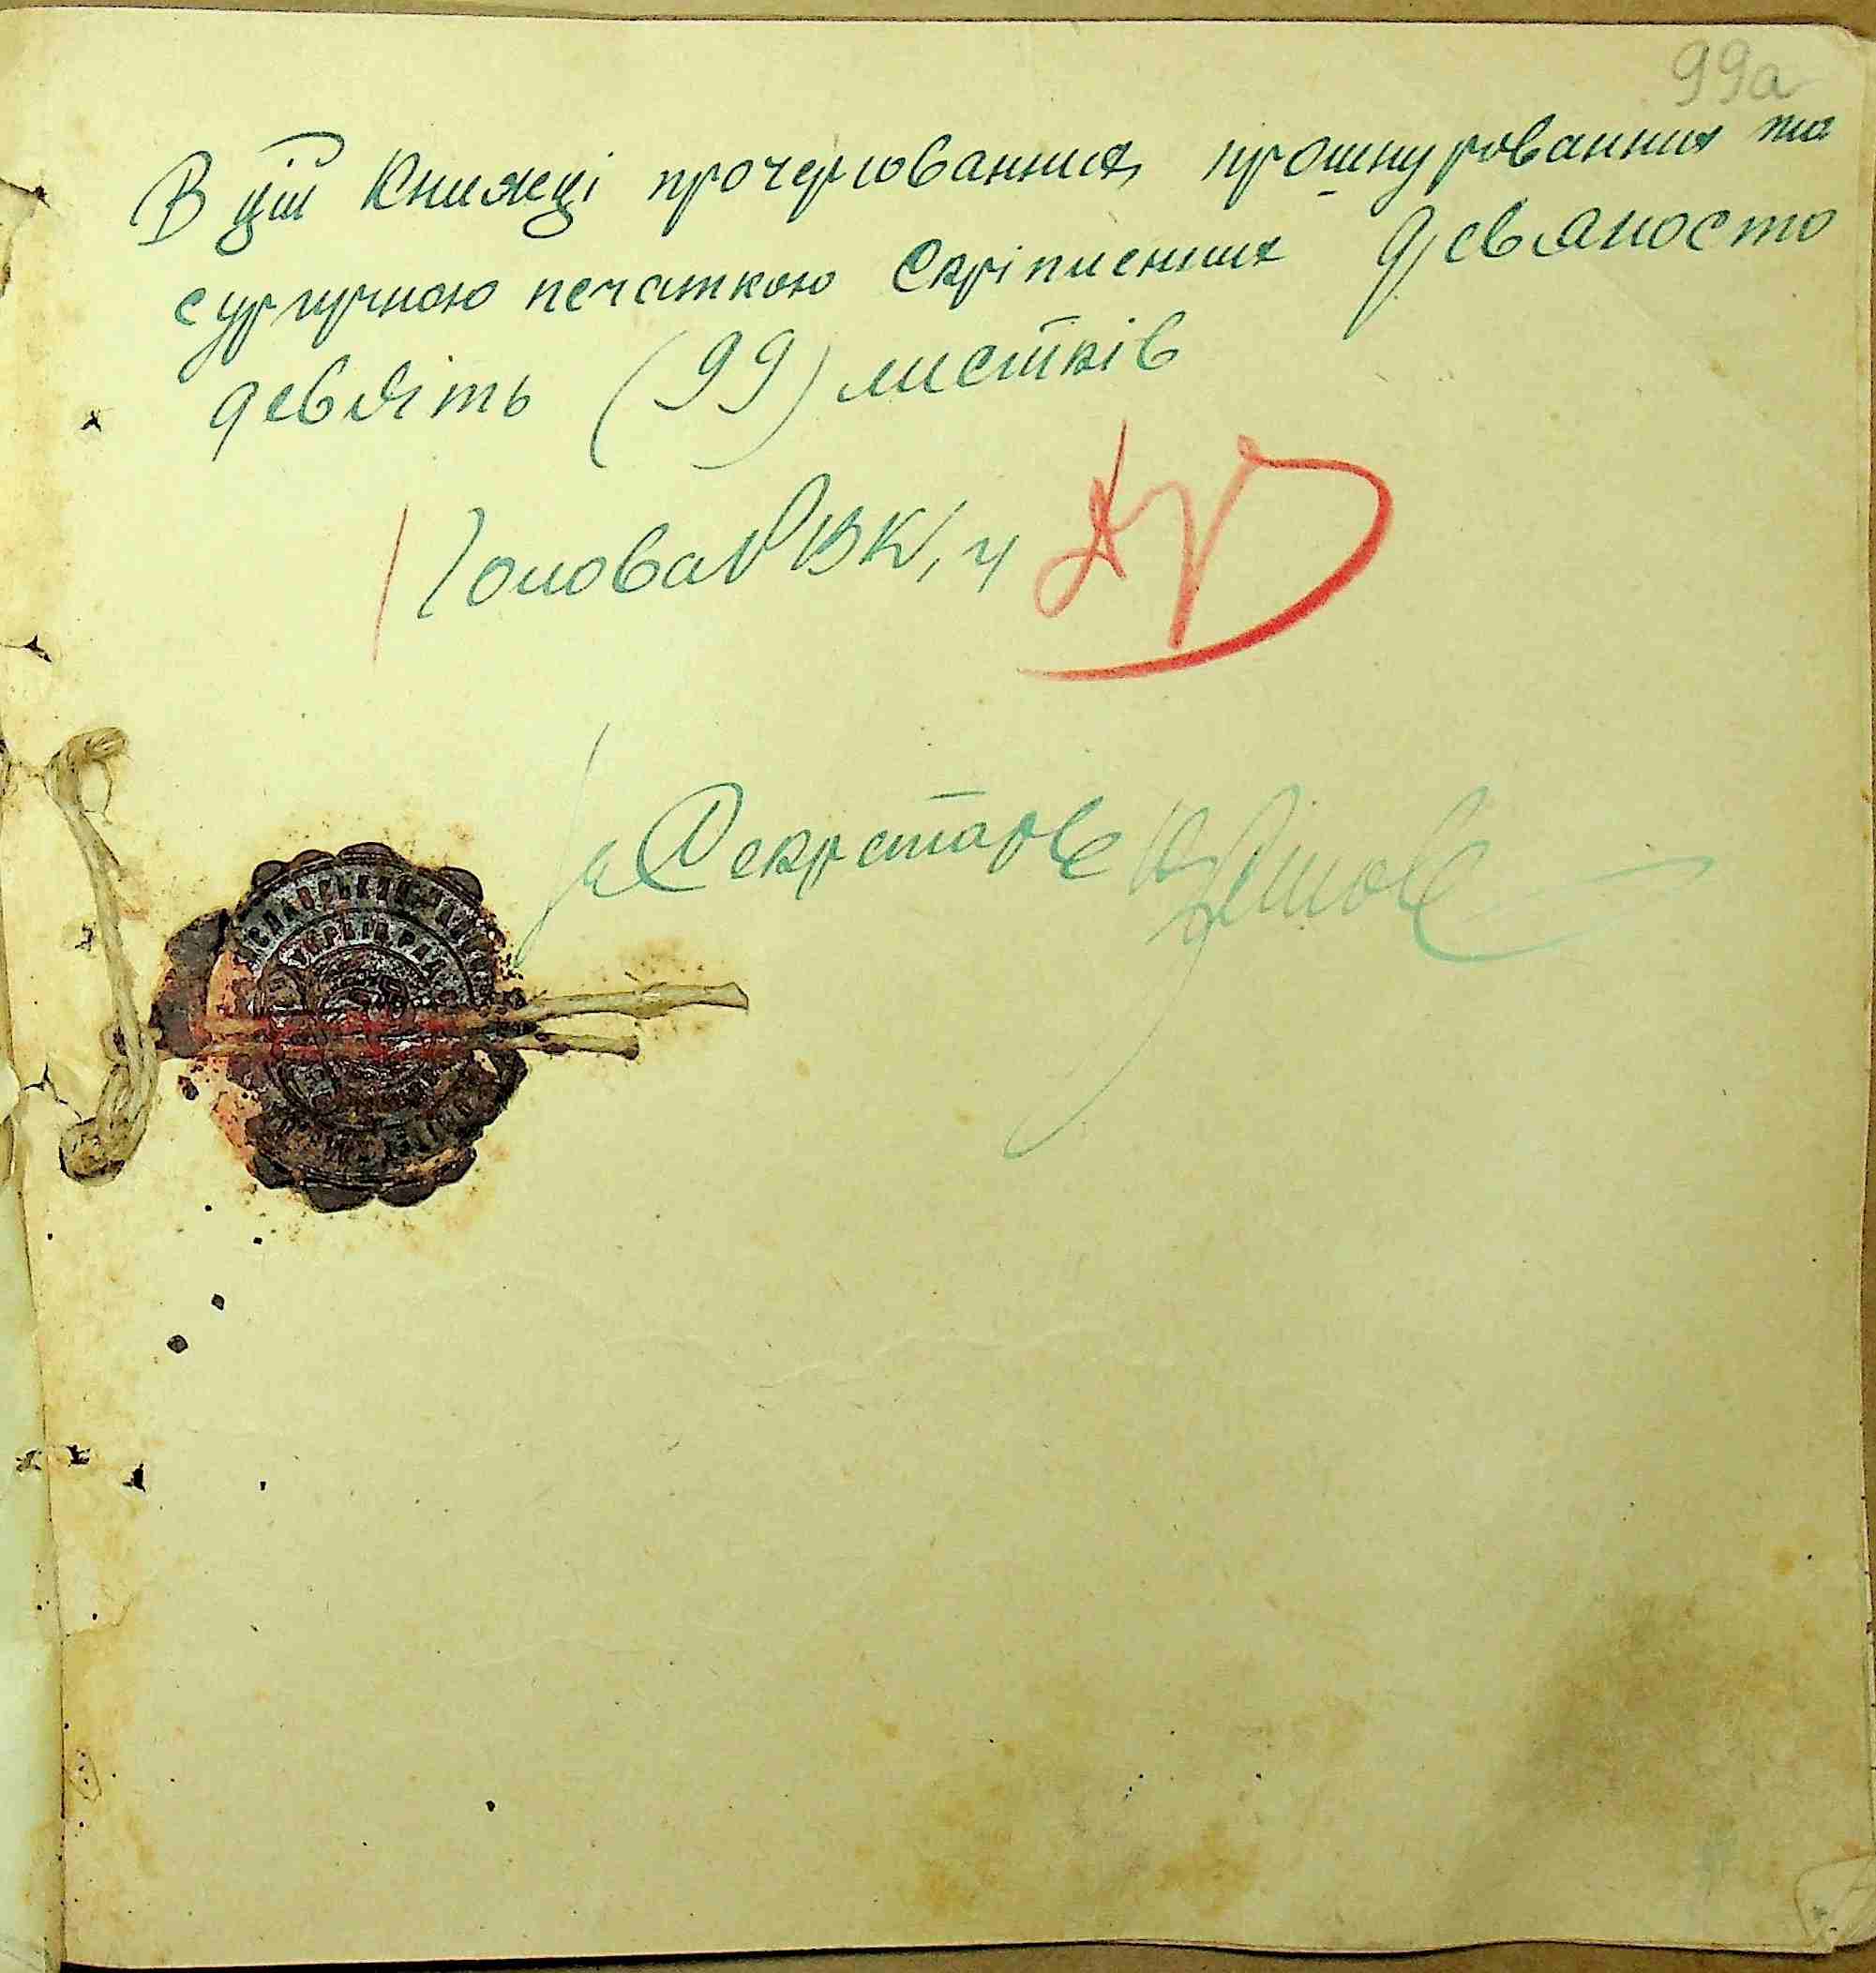 99а
В цій Книжці прочерюванних, прошнурованних та
сургучною печаткою скріпленних Девяносто
девять (99) листків
Голова РВК,
Секретарь